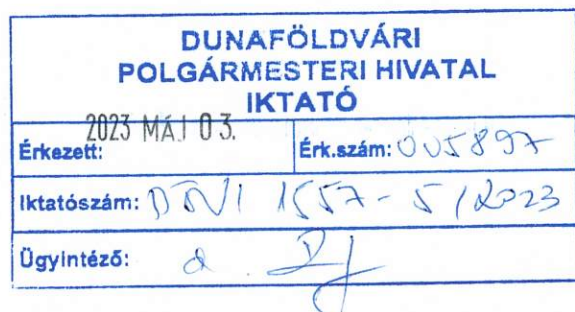 DUNAFÖLDVÁRI
POLGÁRMESTERI HIVATAL
IKTATÓ
2023 MÁJ 03.
Érkezett: Érk.szám: 005897
Iktatószám: 1557-5/2023
Ügyintéző: